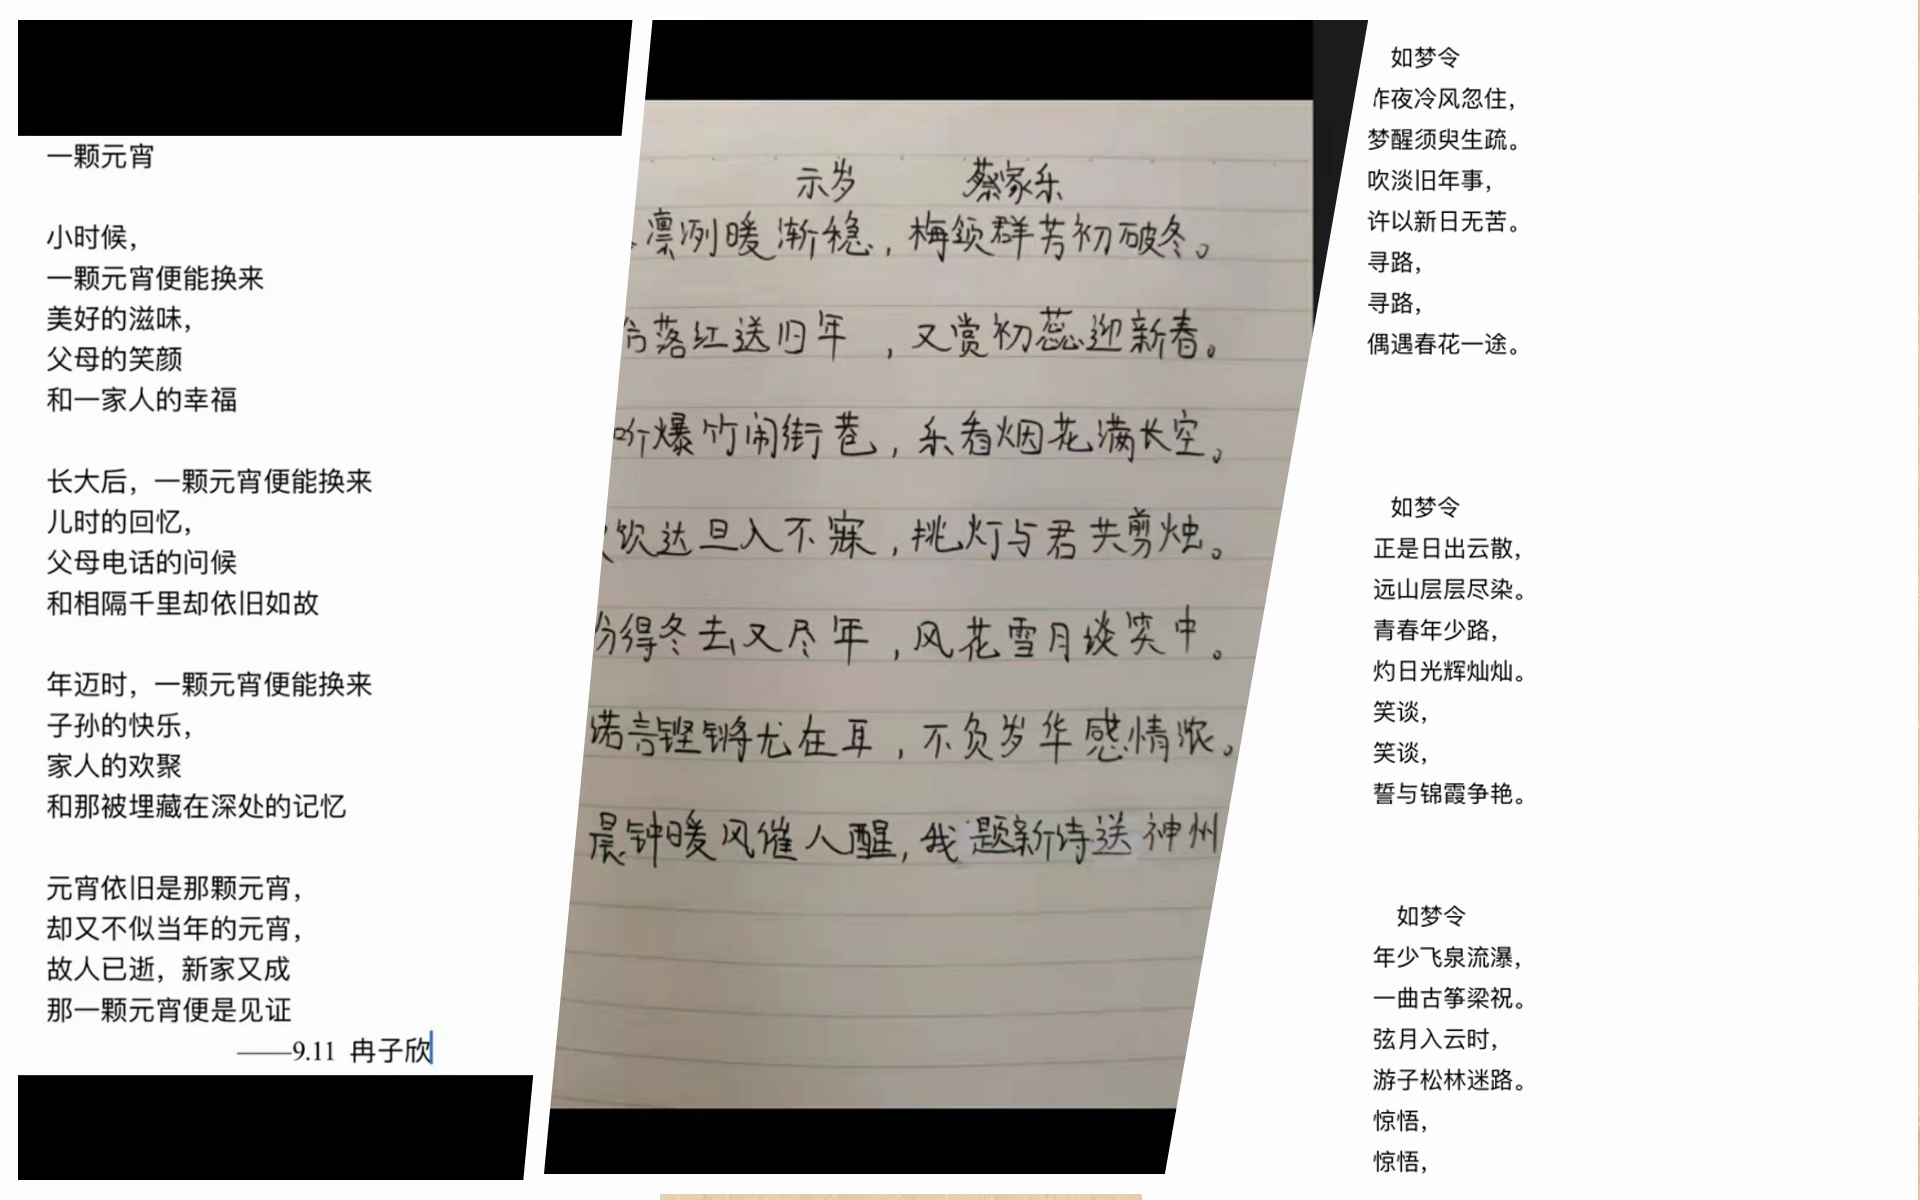 一颗元宵
小时候，
一颗元宵便能换来
美好的滋味，
父母的笑颜
和一家人的幸福
长大后，一颗元宵便能换来
儿时的回忆，
父母电话的问候
和相隔千里却依旧如故
年迈时，一颗元宵便能换来
子孙的快乐，
家人的欢聚
和那被埋藏在深处的记忆
元宵依旧是那颗元宵，
却又不似当年的元宵，
故人已逝，新家又成
那一颗元宵便是见证
——9.11 冉子欣
示岁 蔡家乐
凛冽暖渐稳，梅领群芳初破冬。
落红送旧年，又赏初蕊迎新春。
爆竹闹街巷，乐看烟花满长空。
饮达旦入不寐，挑灯与君共剪烛。
得冬去又尽年，风花雪月谈笑中。
诺言铿锵尤在耳，不负岁华感情浓。
晨钟暖风催人醒，我题新诗送神州
如梦令
昨夜冷风忽住，
梦醒须臾生疏。
吹淡旧年事，
许以新日无苦。
寻路，
寻路，
偶遇春花一途。
如梦令
正是日出云散，
远山层层尽染。
青春年少路，
灼日光辉灿灿。
笑谈，
笑谈，
誓与锦霞争艳。
如梦令
年少飞泉流瀑，
一曲古筝梁祝。
弦月入云时，
游子松林迷路。
惊悟，
惊悟，